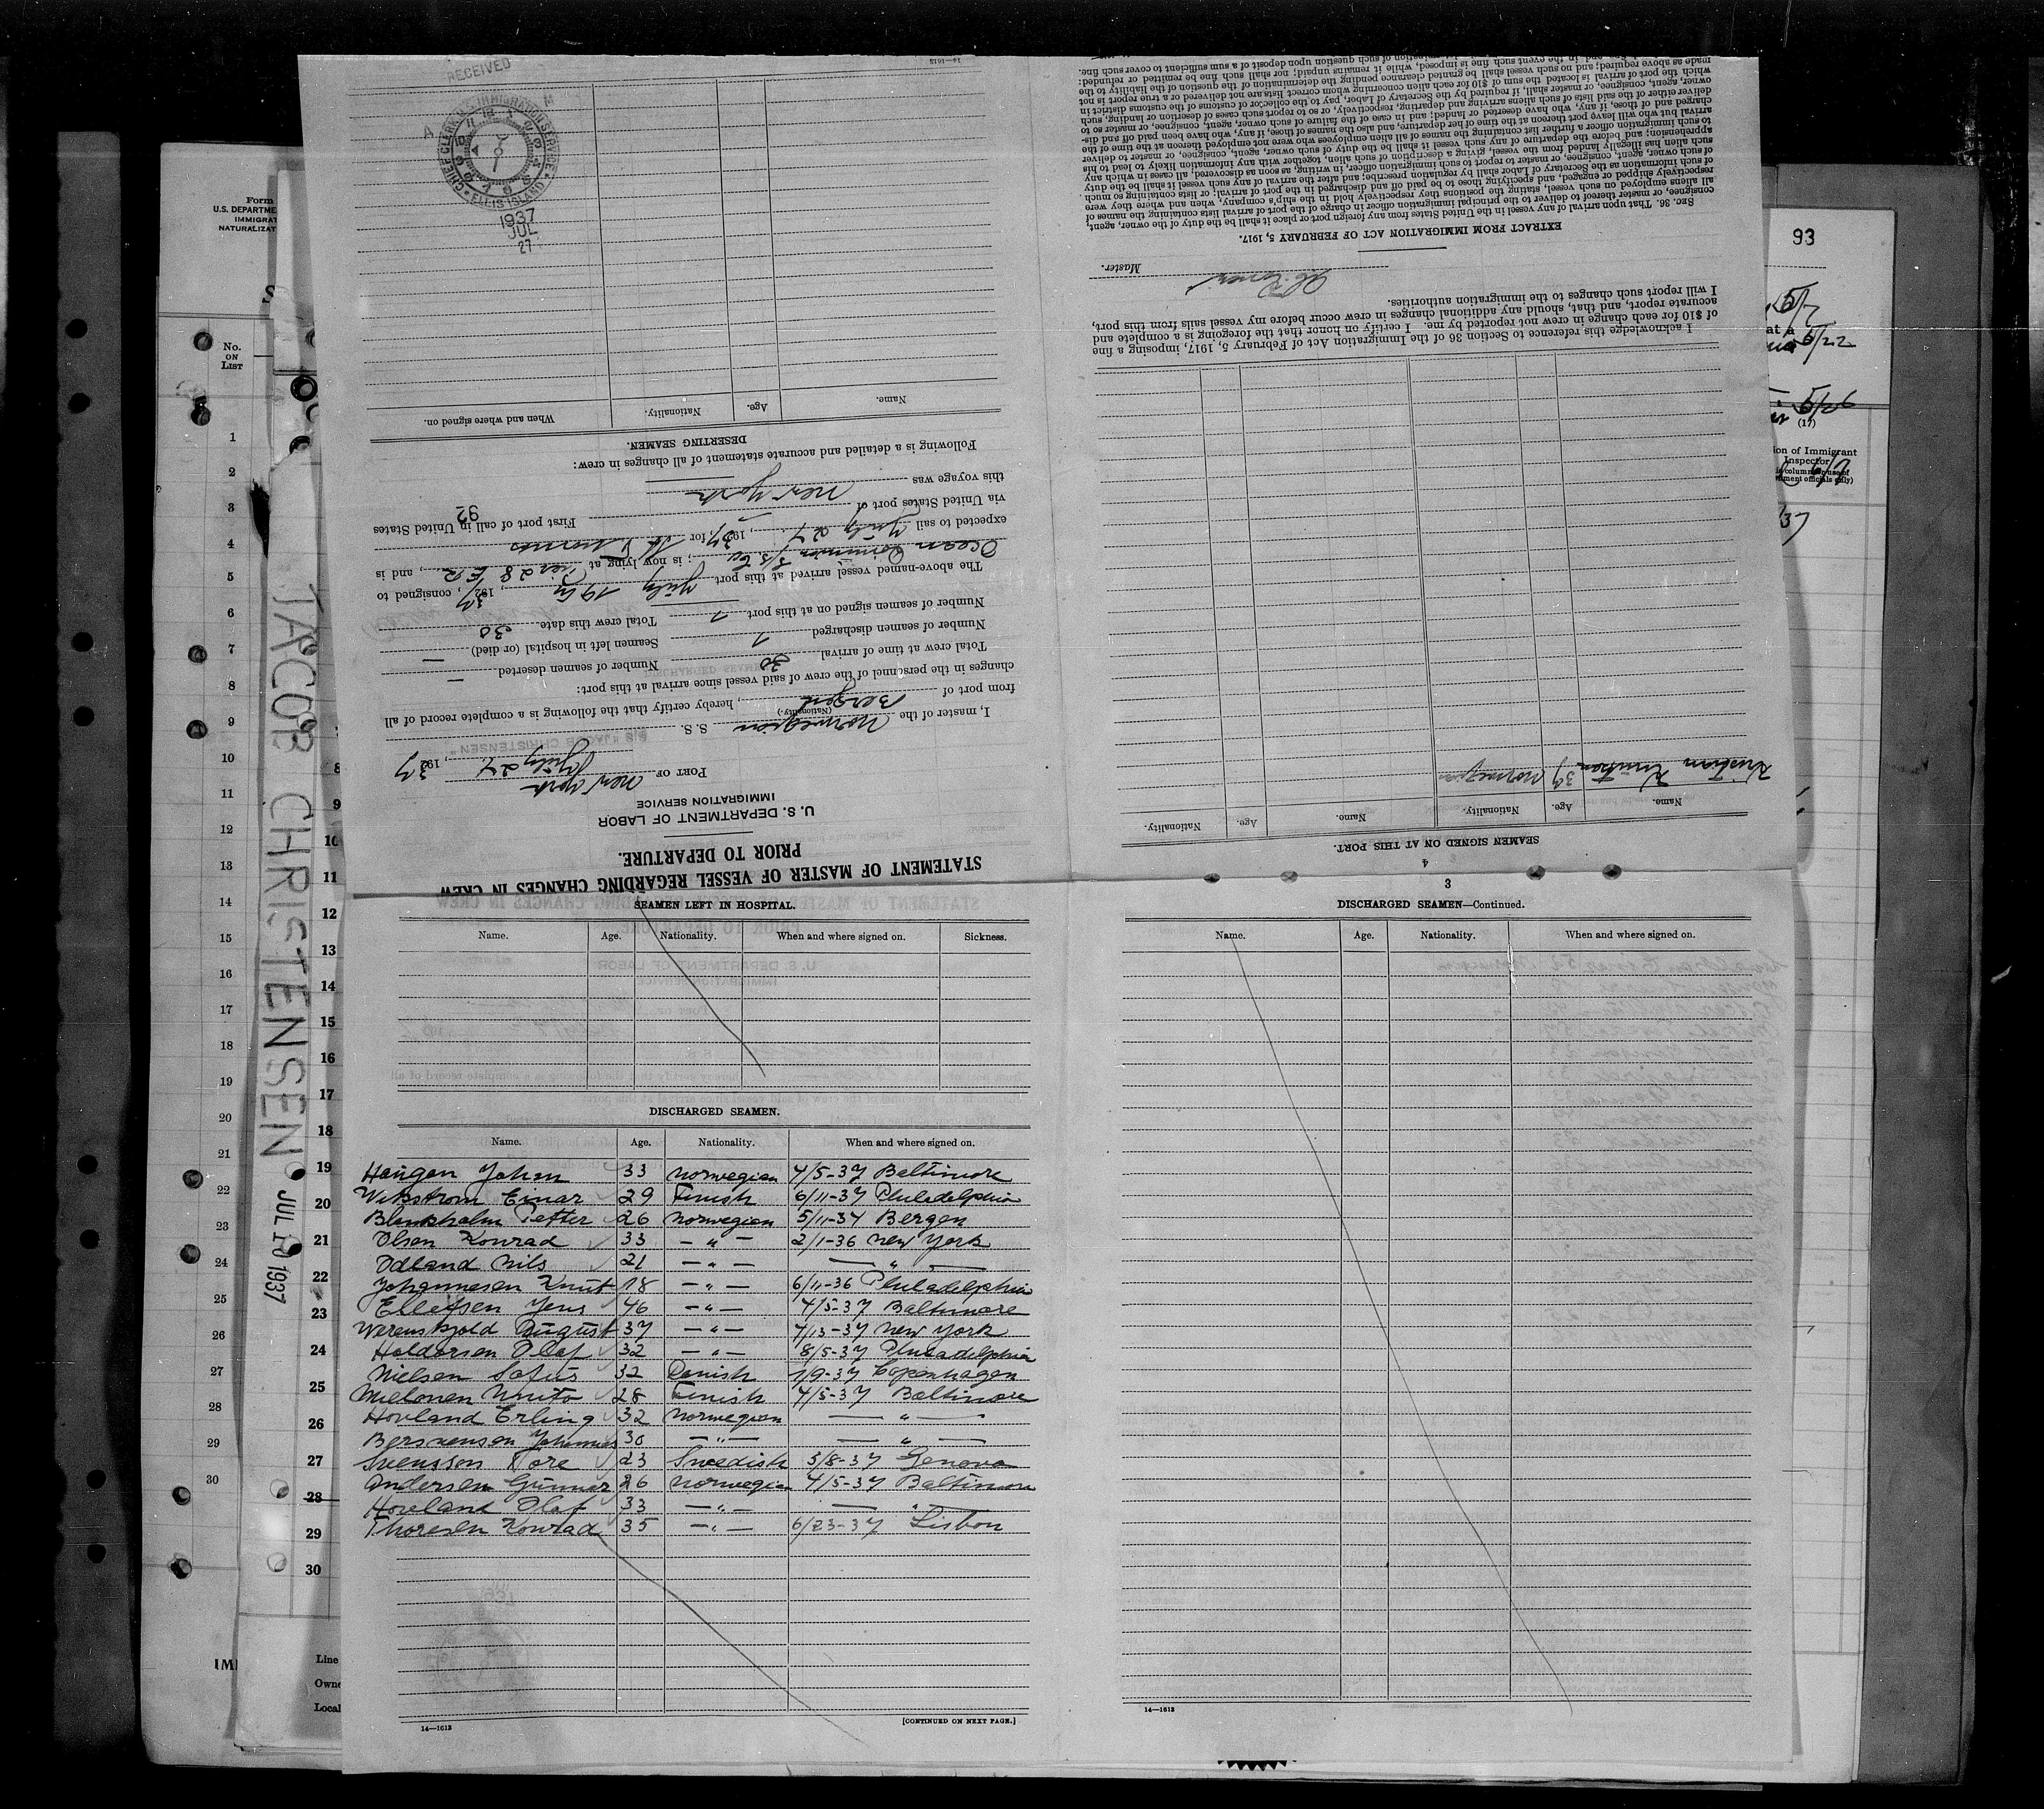 STATEMENT OF MASTER OF VESSEL REGARDING CHANGES IN CREW
PRIOR TO DEPARTURE.
U. S. DEPARTMENT OF LABOR
IMMIGRATION SERVICE
PORT OF New York
July 27, 1937
I, master of the Norwegian S.S.
(Nationality.)
from port of Bergen, hereby certify that the following is a complete record of all
changes in the personnel of the crew of said vessel since arrival at this port:
Total crew at time of arrival 30 Number of seamen deserted —
Number of seamen discharged Seamen left in hospital (or died) —
Number of seamen signed on at this port Total crew this date 30
The above-named vessel arrived at this port July 19, 1937, consigned to
Ocean Dominion S/S Co; is now lying at Pier 28 E R, and is
expected to sail July 27, 1937, for St Thomas
via United States port of — First port of call in United States 92
this voyage was New York
Following is a detailed and accurate statement of all changes in crew:
DESERTING SEAMEN.
Name. Age. Nationality. When and where signed on.
RECEIVED
CHIEF CLERK IMMIGRATION SERVICE
ELLIS ISLAND
1937
JUL
27
14—1613
4
SEAMEN SIGNED ON AT THIS PORT.
Name. Age. Nationality. Name. Age. Nationality.
Kristian Knutsen 37 Norwegian
I acknowledge this reference to Section 36 of the Immigration Act of February 5, 1917, imposing a fine
of $10 for each change in crew not reported by me. I certify on honor that the foregoing is a complete and
accurate report, and that, should any additional changes in crew occur before my vessel sails from this port,
I will report such changes to the immigration authorities.
Master.
EXTRACT FROM IMMIGRATION ACT OF FEBRUARY 5, 1917.
SEC. 36. That upon arrival of any vessel in the United States from any foreign port or place it shall be the duty of the owner, agent,
consignee, or master thereof to deliver to the principal immigration officer in charge of the port of arrival lists containing the names of
all aliens employed on such vessel, stating the positions they respectively hold in the ship's company, when and where they were
respectively shipped or engaged, and specifying those to be paid off and discharged in the port of arrival; or lists containing so much
of such information as the Secretary of Labor shall by regulation prescribe; and after the arrival of any such vessel it shall be the duty
of such owner, agent, consignee, or master to report to such immigration officer, in writing, as soon as discovered, all cases in which any
such alien has illegally landed from the vessel, giving a description of such alien, together with any information likely to lead to his
apprehension; and before the departure of any such vessel it shall be the duty of such owner, agent, consignee, or master to deliver
to such immigration officer a further list containing the names of all alien employees who were not employed thereon at the time of the
arrival but who will leave port thereon at the time of her departure, and also the names of those, if any, who have been paid off and dis-
charged and of those, if any, who have deserted or landed; and in case of the failure of such owner, agent, consignee, or master so to
deliver either of the said lists of such aliens arriving and departing, respectively, or so to report such cases of desertion or landing, such
owner, agent, consignee, or master, shall, if required by the Secretary of Labor, pay to the collector of customs of the customs district in
which the port of arrival is located the sum of $10 for each alien concerning whom correct lists are not delivered or a true report is not
made as above required; and no such vessel shall be granted clearance pending the determination of the question of the liability to the
SEAMEN LEFT IN HOSPITAL.
Name. Age. Nationality. When and where signed on. Sickness.
DISCHARGED SEAMEN.
Name. Age. Nationality. When and where signed on.
Haugan Johan 33 Norwegian 4/5-37 Baltimore
Wikstrom Einar 29 Finish 6/11-37 Philadelphia
Blenkholm Petter 26 Norwegian 5/11-34 Bergen
Olsen Konrad 33 — " — 2/1-36 New York
Odland Nils 21 — " — — " —
Johannesen Knut 18 — " — 6/11-36 Philadelphia
Ellefsen Jens 46 — " — 4/5-37 Baltimore
Werenskjold August 37 — " — 4/13-37 New York
Haldorsen Olaf 32 — " — 8/5-37 Philadelphia
Nielsen Sofus 32 Danish 1/9-37 Copenhagen
Mielonen Unito 28 Finish 4/5-37 Baltimore
Hovland Erling 32 Norwegian — " —
Bersvensen Johannes 30 — " — — " —
Svensson Tore 23 Swedish 3/8-37 Genova
Andersen Gunnar 26 Norwegian 4/5-37 Baltimore
Hovland Olaf 33 — " — — " —
Thoresen Konrad 35 — " — 6/23-37 Lisbon
14—1613 [CONTINUED ON NEXT PAGE.]
3
DISCHARGED SEAMEN—Continued.
Name. Age. Nationality. When and where signed on.
14—1613
JACOB CHRISTENSEN JUL 19 1937
Form
U.S. DEPARTME
IMMIGRAT
NATURALIZAT
No.
ON
LIST
1
2
3
4
5
6
7
8
9
10
11
12
13
14
15
16
17
18
19
20
21
22
23
24
25
26
27
28
29
30
8
9
10
11
12
13
14
15
16
17
18
19
20
21
22
23
24
25
26
27
28
29
30
Line
Owne
Local
93
5/22
5/26
(17)
ion of Immigrant
Inspector